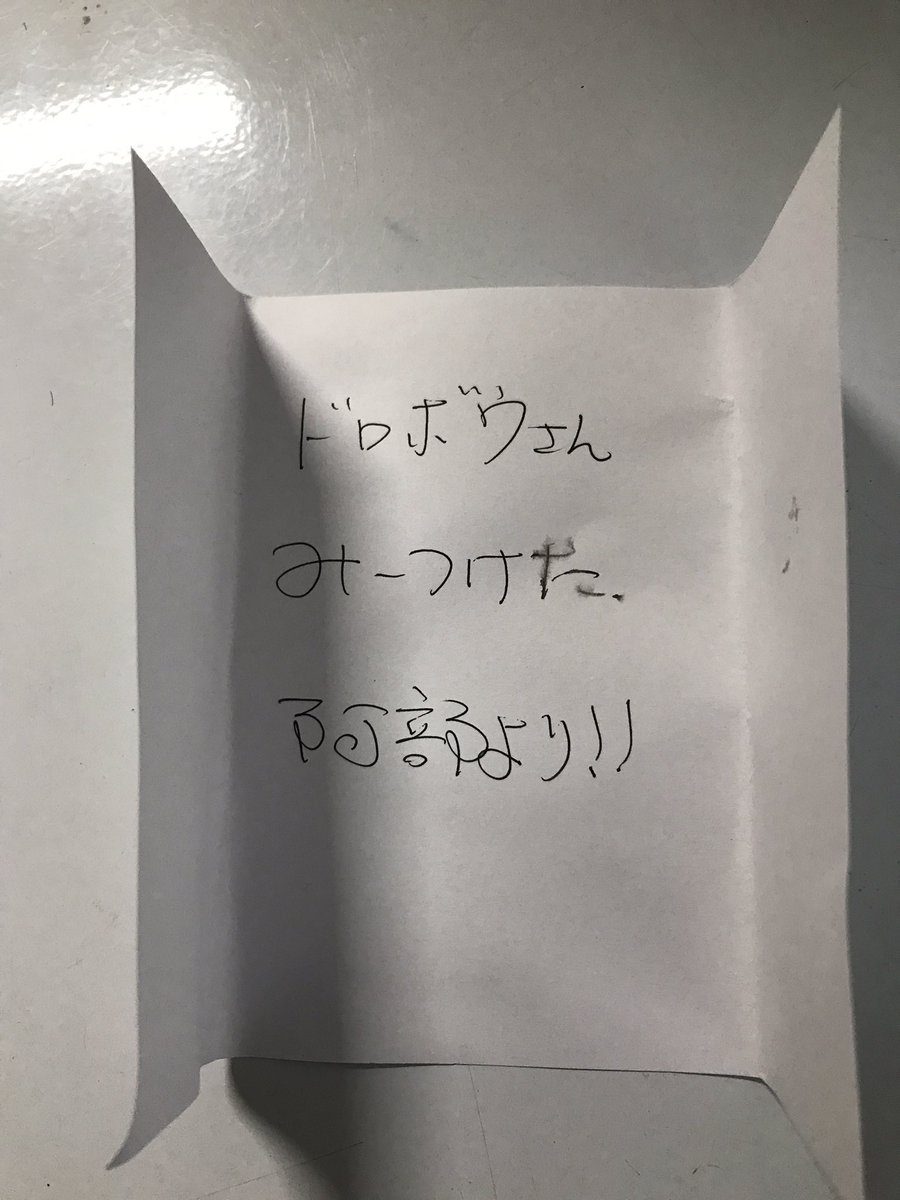 ドロボウさん
みーつけた.
阿部より!!